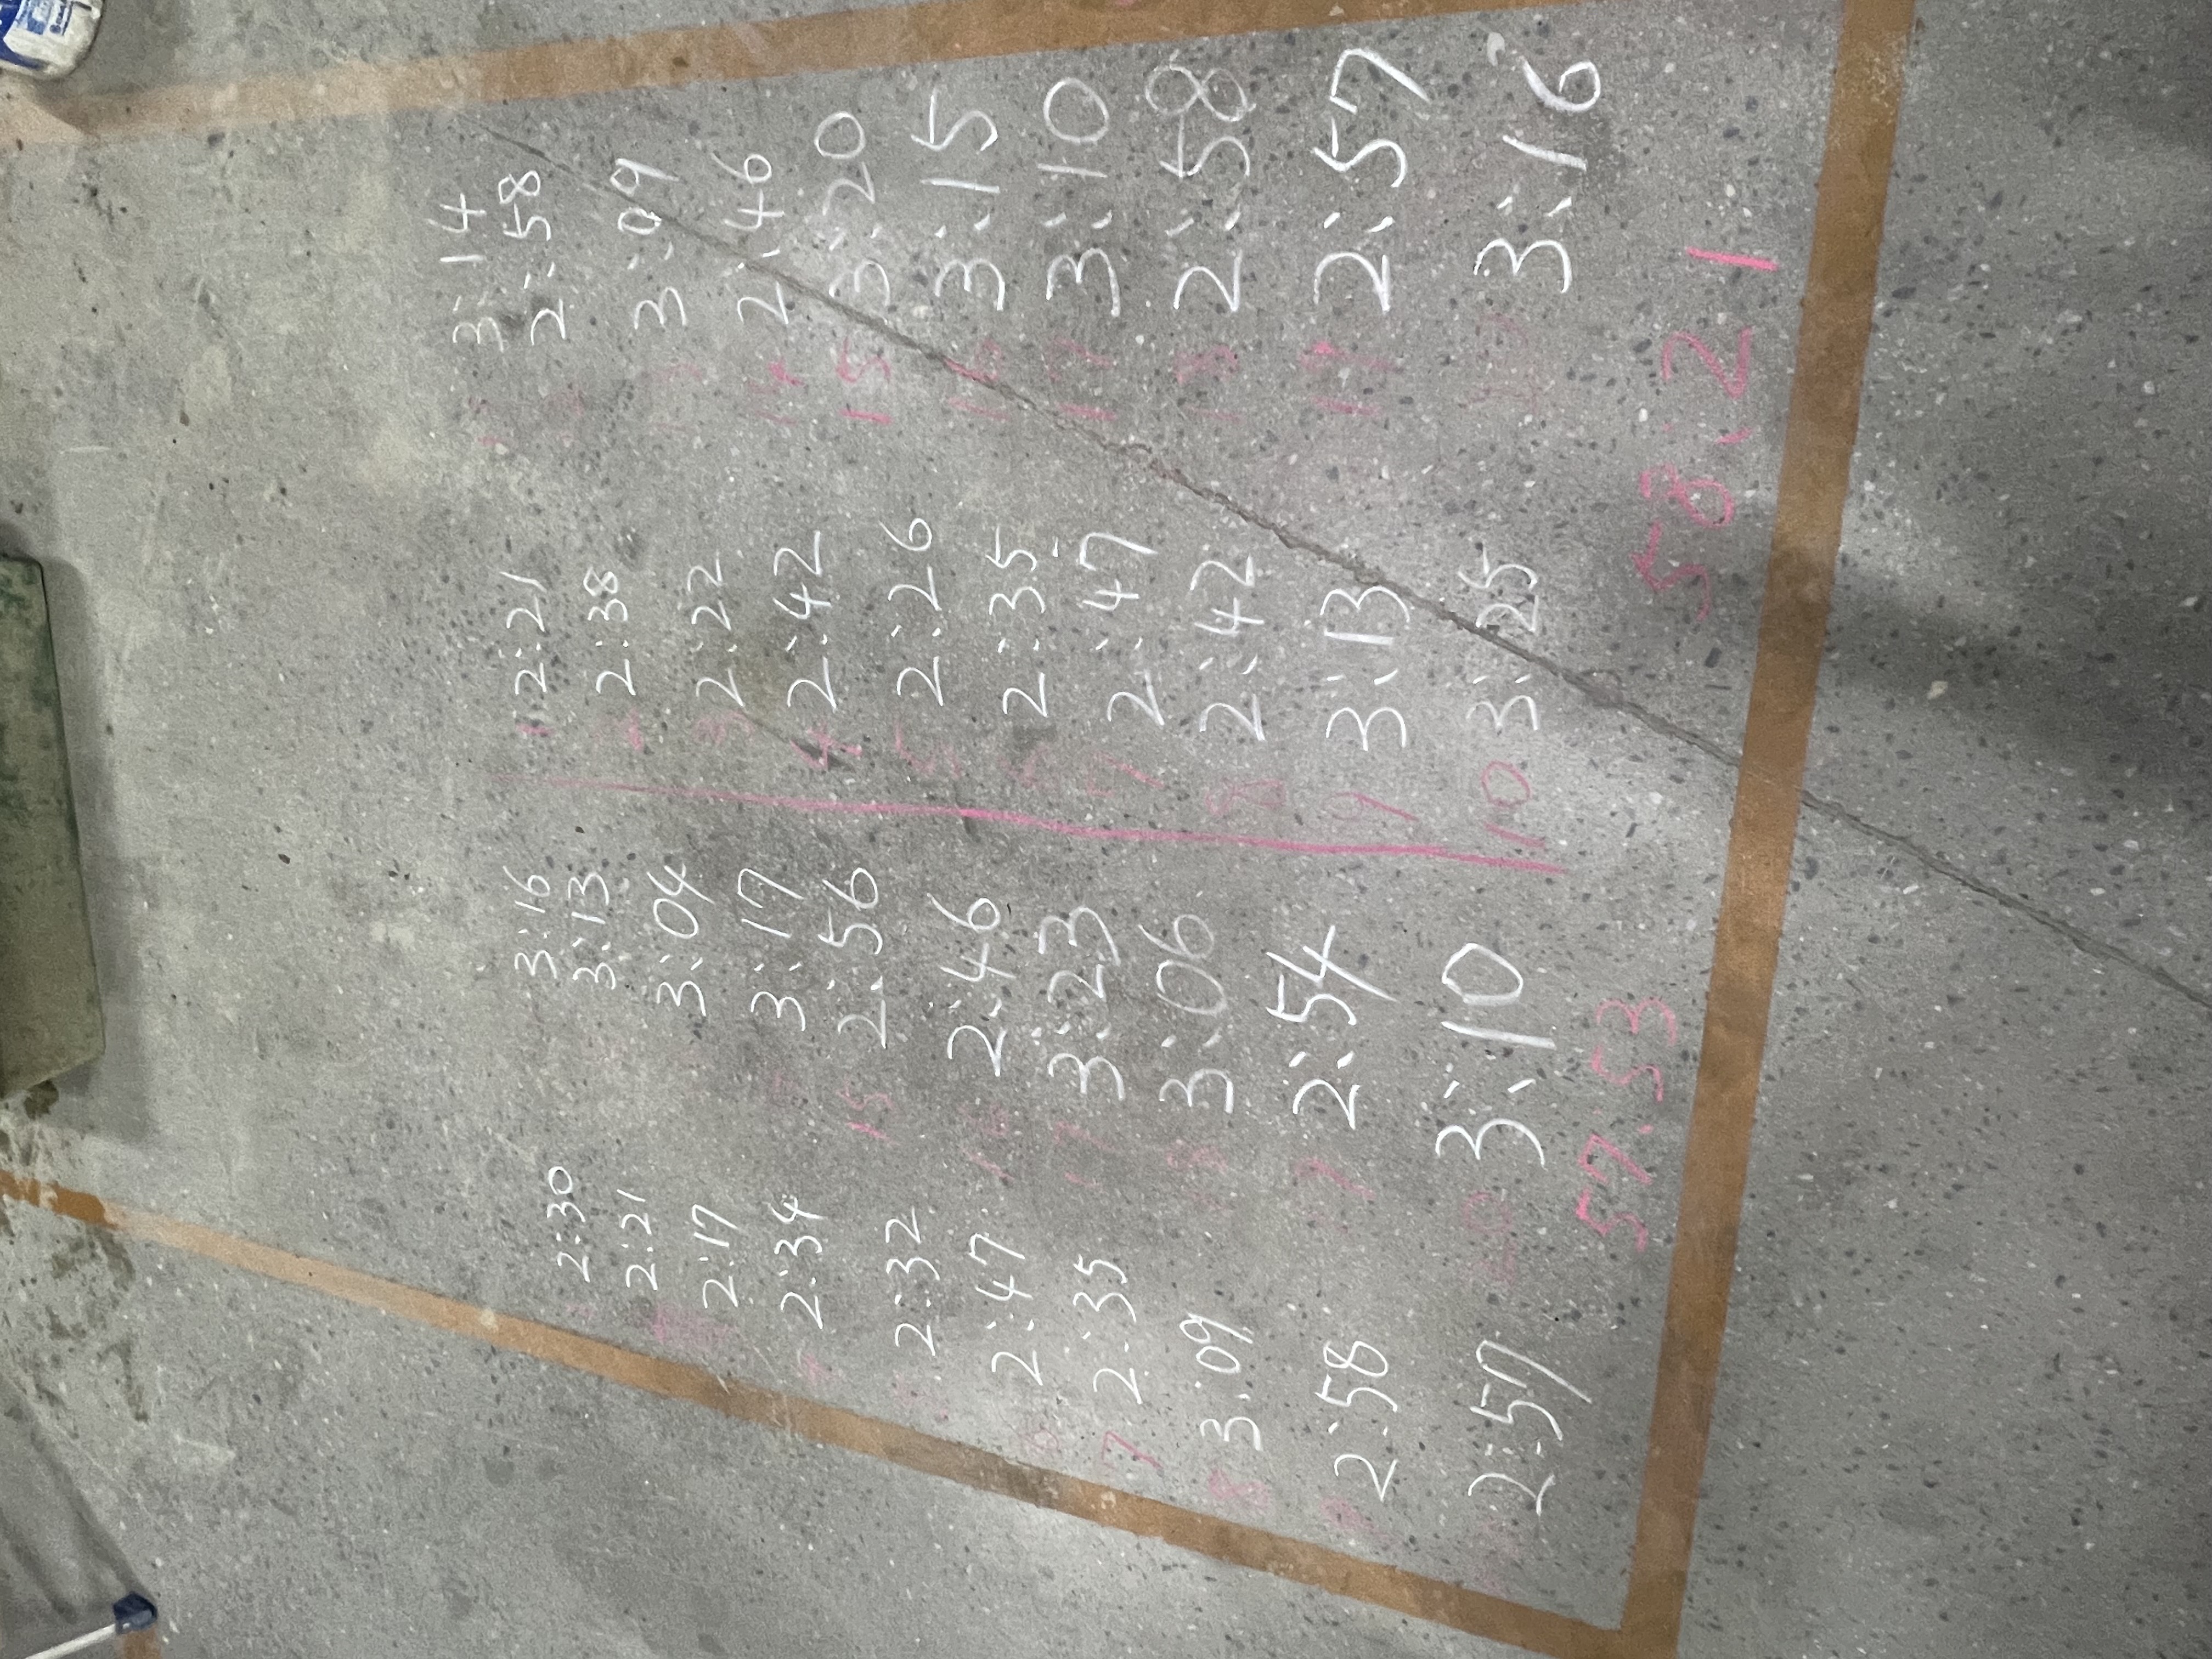 2:30 3:16 1 2:21 3:14
2:21 3:13 2 2:38 2:58
2:17 3:04 3 2:22 3:09
4 2:34 3:17 4 2:42 14 2:46
2:32 15 2:56 5 2:26 15 3:20
6 2:47 16 2:46 6 2:35 16 3:15
7 2:35 17 3:23 7 2:47 17 3:10
8 3:09 18 3:06 8 2:42 18 2:58
9 2:58 19 2:54 9 3:13 19 2:57
2:57 20 3:10 10 3:25 3:16
57:53 58:21